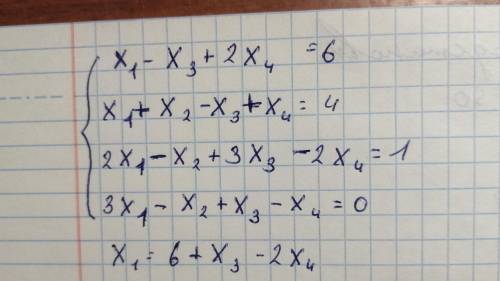 x₁ - x₃ + 2x₄ = 6
x₁ + x₂ - x₃ + x₄ = 4
2x₁ - x₂ + 3x₃ - 2x₄ = 1
3x₁ - x₂ + x₃ - x₄ = 0
x₁ = 6 + x₃ - 2x₄